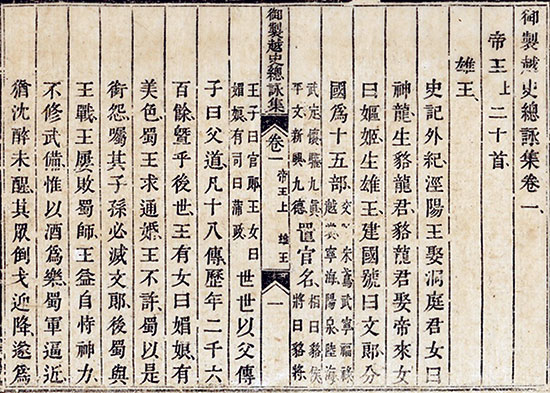 御製越史總詠集卷一
帝王上二十首
雄王
史記外紀涇陽王娶洞庭君女曰
神龍生貉龍君貉龍君娶帝來女
曰嫗姬生雄王建國號曰文郎分
國爲十五部交朱鳶武寧福祿越裳寧海陽泉陸海
武定懷驩九眞平文新興九德置官名相曰貉侯將曰貉將
御製越史總詠集 卷一 帝王上 雄王 一
王子曰官郎王女曰媚娘有司曰蒲政世世以父傳
子曰父道凡十八傳歷年二千六
百餘暨乎後世王有女曰媚娘有
美色蜀王求通婚王不許蜀以是
銜怨囑其子孫必滅文郎後蜀與
王戰王屢敗蜀師王益自恃神力
不修武備惟以酒爲樂蜀軍逼近
猶沈醉未醒其眾倒戈迎降遂爲